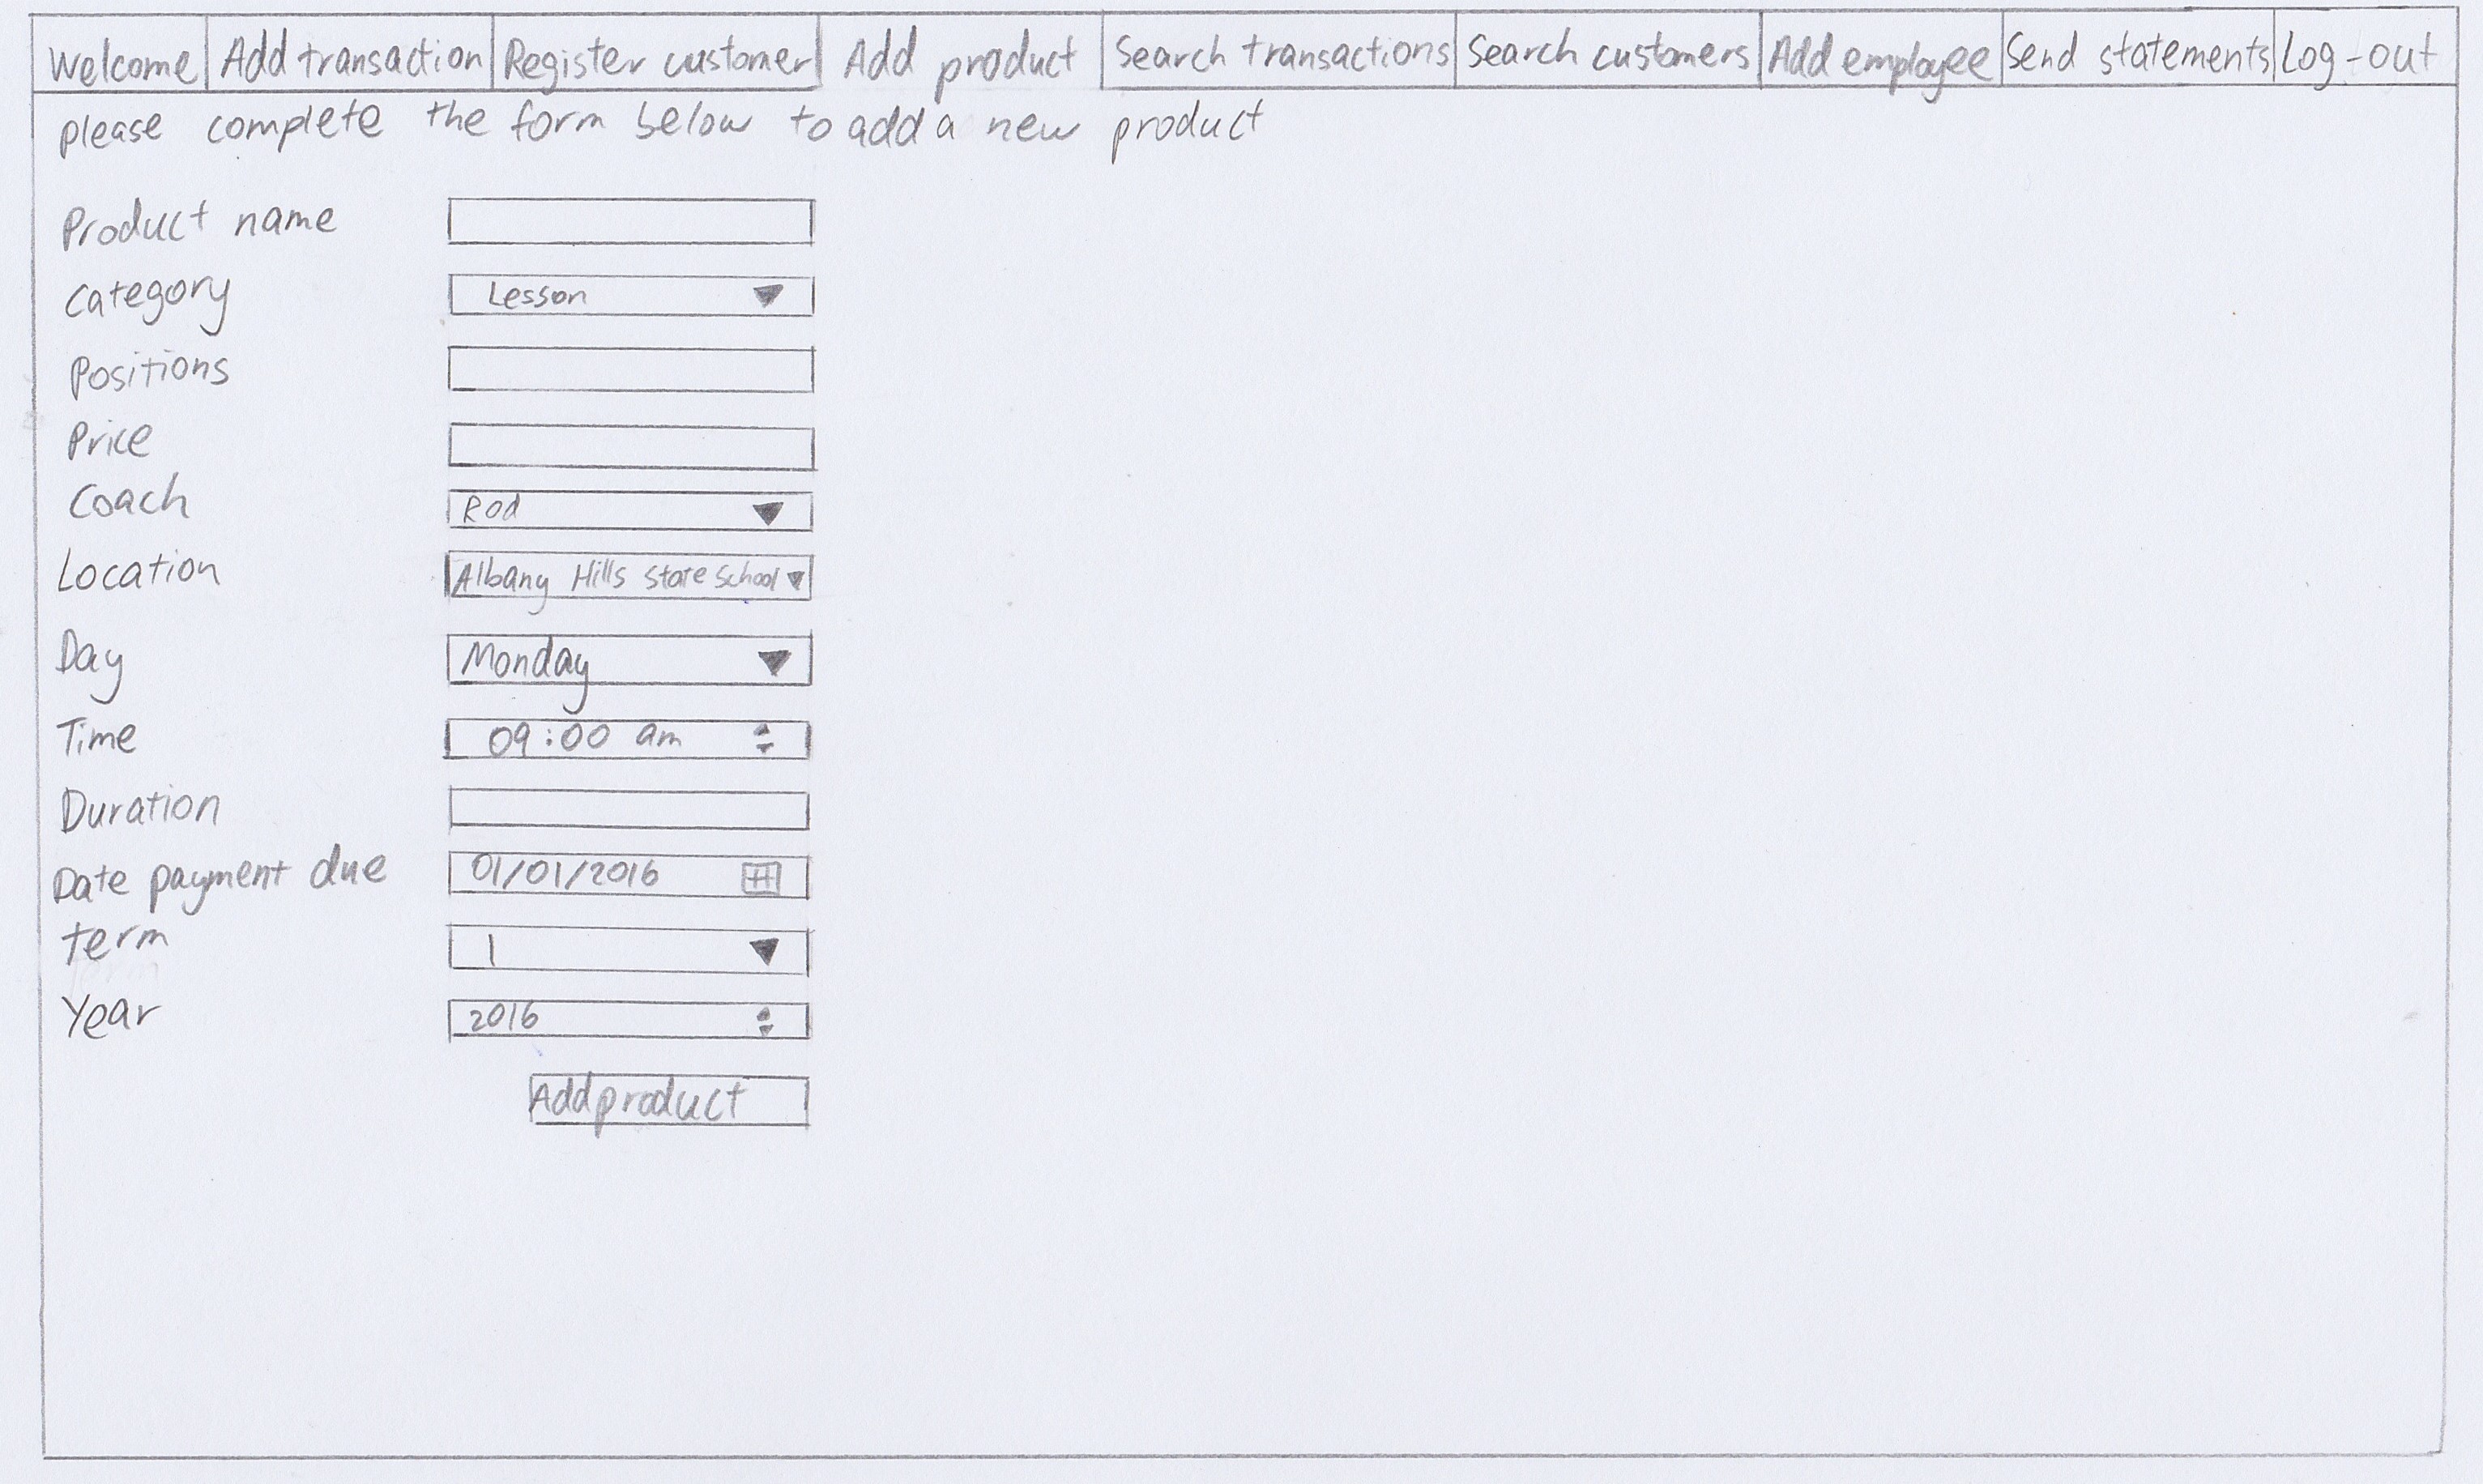 Welcome Add transaction Register customer Add product Search transactions Search customers Add employee Send statements Log-out
please complete the form below to add a new product
Product name
Category Lesson
Positions
Price
Coach Rod
Location Albany Hills State School
Day Monday
Time 09:00 am
Duration
Date payment due 01/01/2016
term 1
Year 2016
Add product